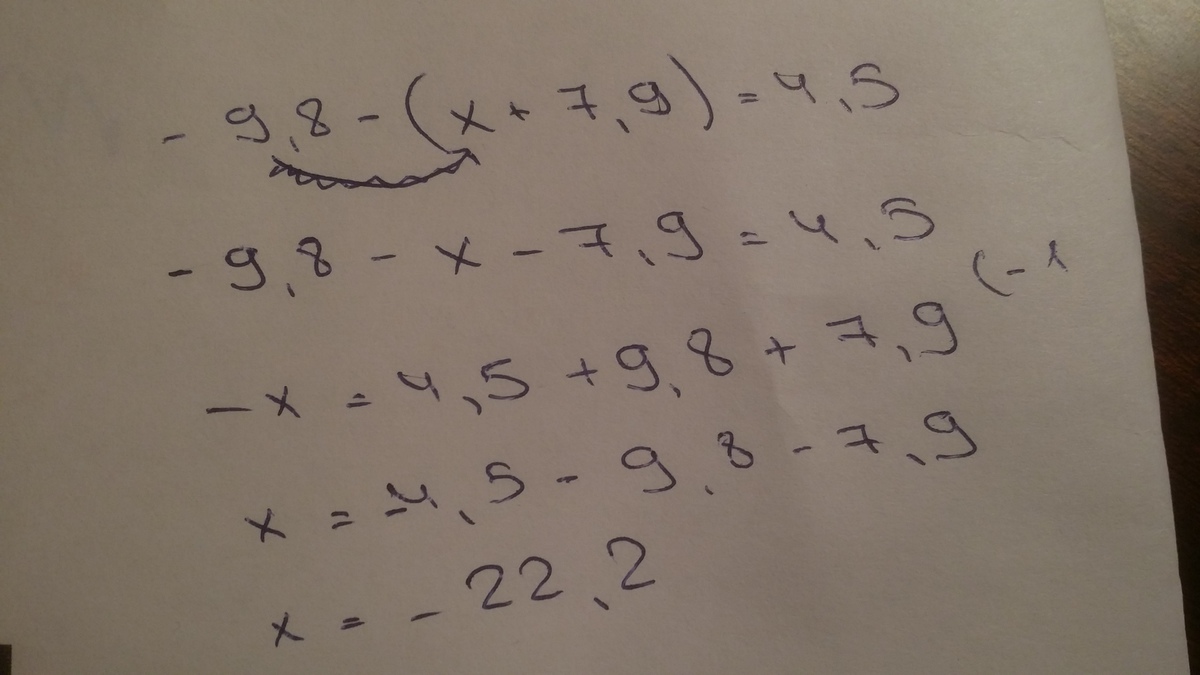 - 9,8 - (x + 7,9) = 4,5
- 9,8 - x - 7,9 = 4,5
- x = 4,5 + 9,8 + 7,9 (-1
x = -4,5 - 9,8 - 7,9
x = - 22,2